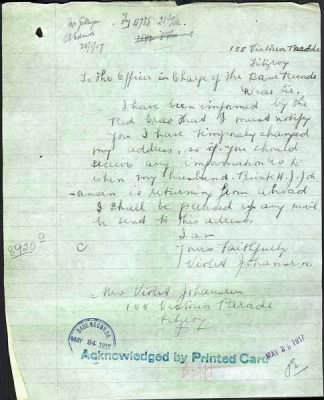 155 Victoria Parade
Fitzroy
To The Officer in Charge of the Base Records
Dear Sir,
I have been informed by the
Red Cross that I must notify
you I have temporaly changed
my address, so if you should
receive any information as to
when my husband Private H. J. Joh
-ansen is returning from abroad
I shall be pleased if any mail
be sent to this address.
I am
Yours Faithfully
Violet Johansen.
Mrs Violet Johansen
155 Victoria Parade
Fitzroy
8920a
C
BASE RECORDS
MAY 24 1917
MAY 24 1917
Acknowledged by Printed Card